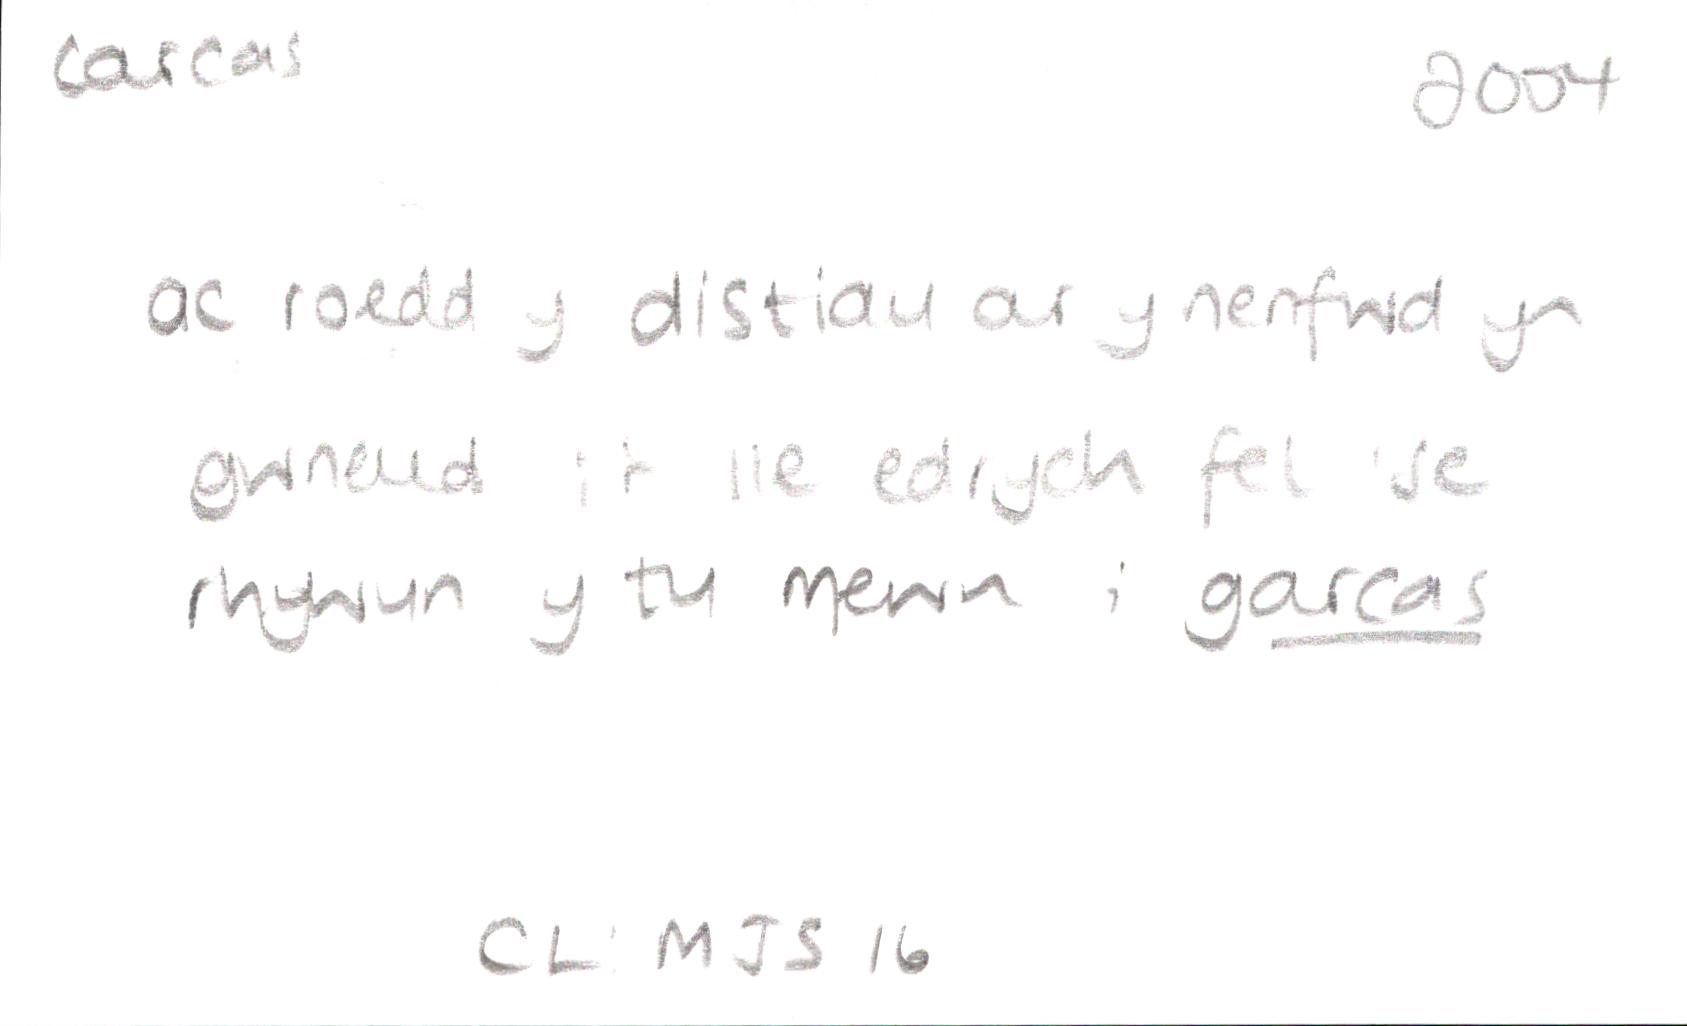 carcas 2004
ac roedd y distiau ar y nenfwd yn
gwneud i'r lle edrych fel 'se
rhywun y tu mewn i garcas
CL: MJS 16